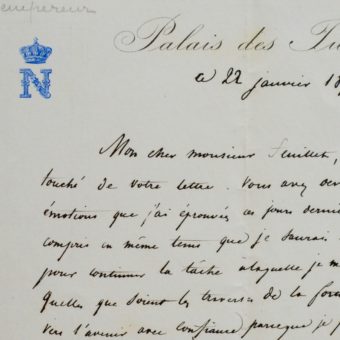 empereur
N
Palais des Tu
Le 22 janvier 18
Mon cher monsieur Feuillet,
touché de votre lettre. Vous avez de
émotions que j'ai éprouvées ces jours derni
compris en même tems que je saurais
pour continuer la tâche à laquelle je m
Quelles que soient les traverses de la for
vers l'avenir avec confiance parceque je p